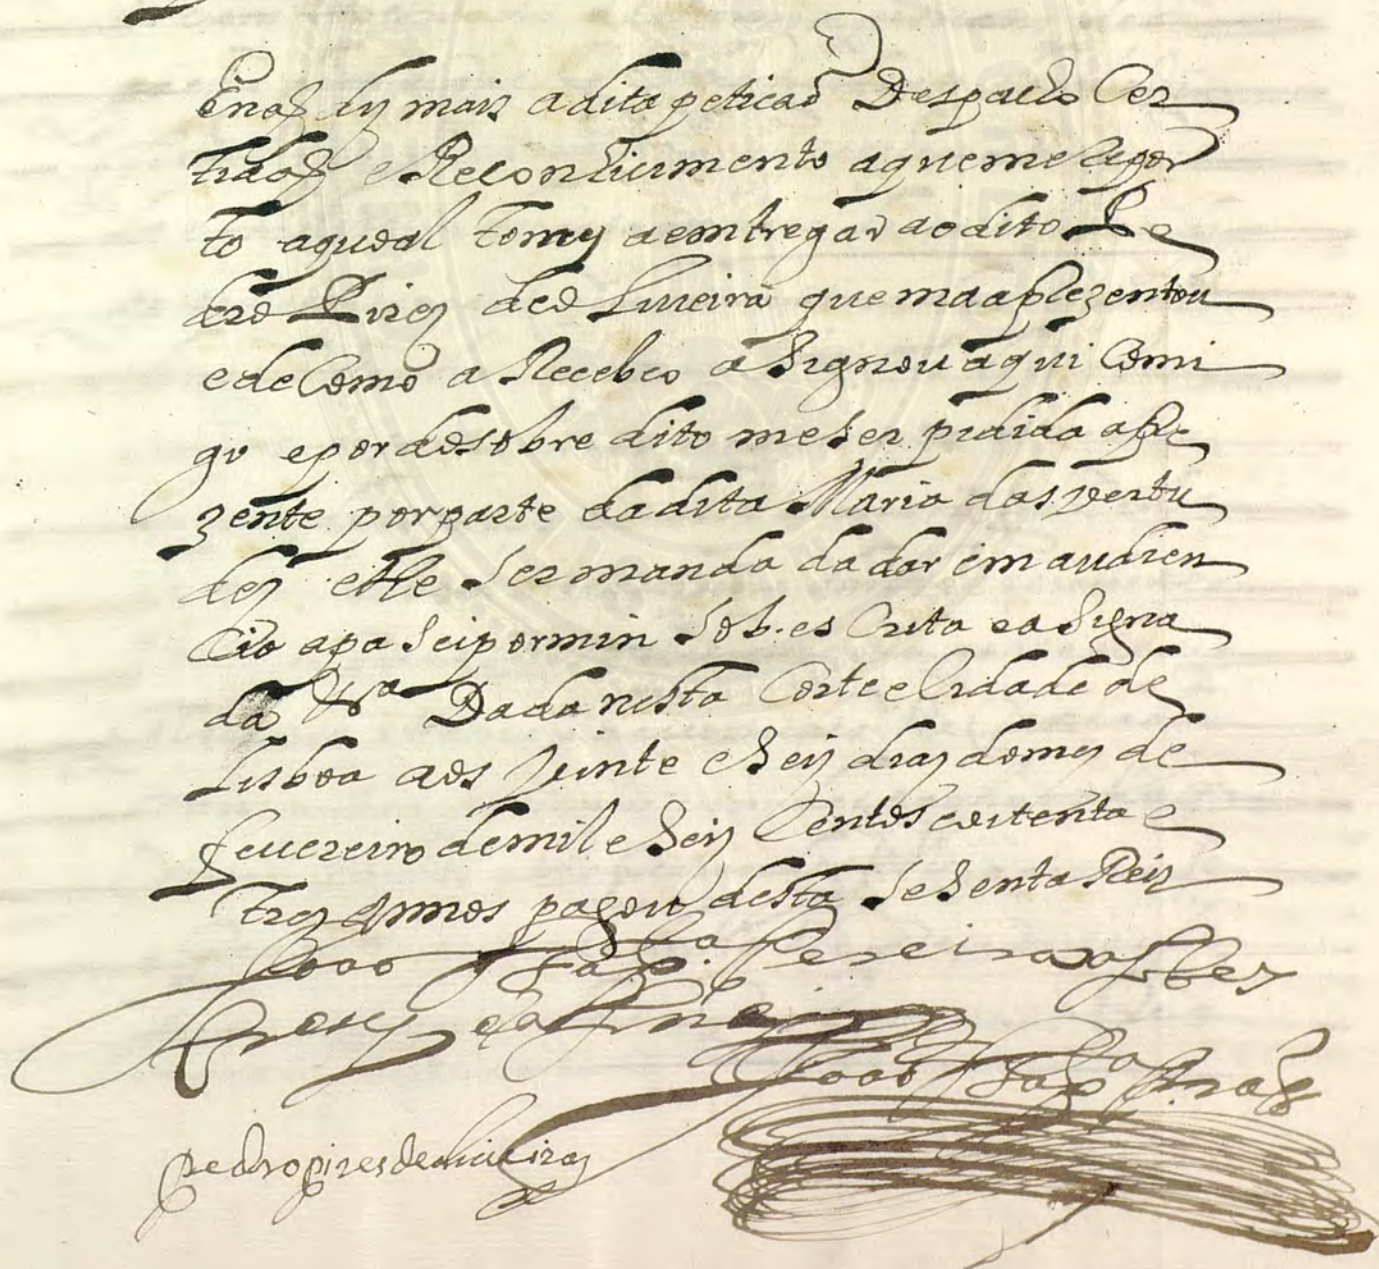 Enaõ dis mais adita peticaõ Despacho Cer
tidaõ e Reconhicimento aquemeRepor
to aqual tornei aemtregar aodito Pe
dro Pires de oLiueira que ma aprezentou
edeComo a Recebeo aSignou aqui Comi
go epor dosobre dito meser pidida apre
zente porparte dadita Maria dasvertu
des elhe Ser mandada dar em audien
Cia apaSeipormin Sob.escrita eaSigna
da Dada nesta Corte eCidade de
Lisboa aos Vinte eSeis dias domes de
feuereiro demil eSeis Centos eoitenta e
tres Annos pagou desta SeSenta Reis
Joaõ Bap.ta Pereira
Joaõ Bap.ta
pedropires deoliueira